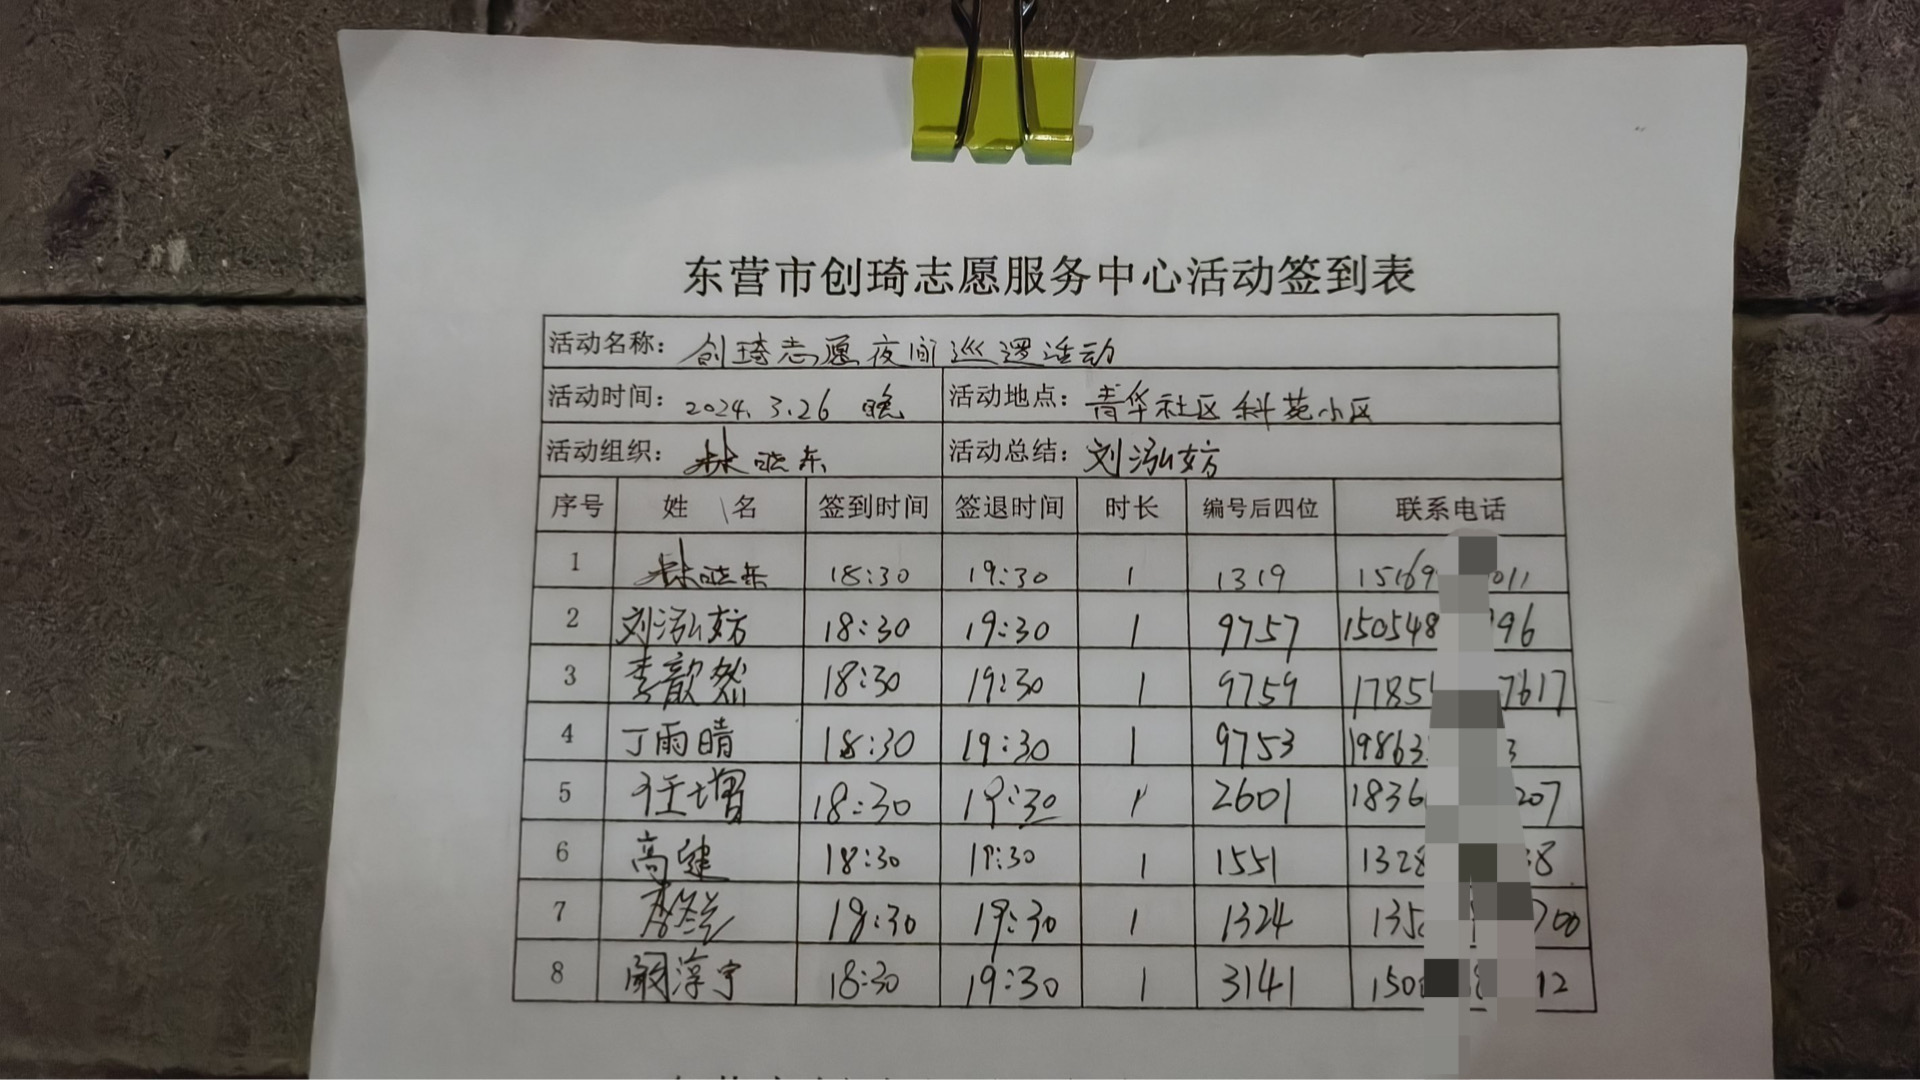 东营市创琦志愿服务中心活动签到表
活动名称: 创琦志愿夜间巡逻活动
活动时间: 2024.3.26 晚 活动地点: 青华社区科苑小区
活动组织: 林晓东 活动总结: 刘泓妨
序号 姓名 签到时间 签退时间 时长 编号后四位 联系电话
1 林晓东 18:30 19:30 1 1319 15169 011
2 刘泓妨 18:30 19:30 1 9757 150548 96
3 李歆然 18:30 19:30 1 9759 1785 7617
4 丁雨晴 18:30 19:30 1 9753 19863 3
5 任增 18:30 19:30 1 2601 1836 207
6 高健 18:30 19:30 1 1551 1328 8
7 18:30 19:30 1 1324 135 700
8 阚淳宇 18:30 19:30 1 3141 150 12